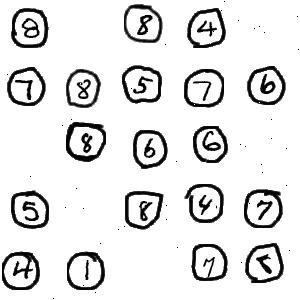 8 8 4
7 8 5 7 6
8 6 6
5 8 4 7
4 1 7